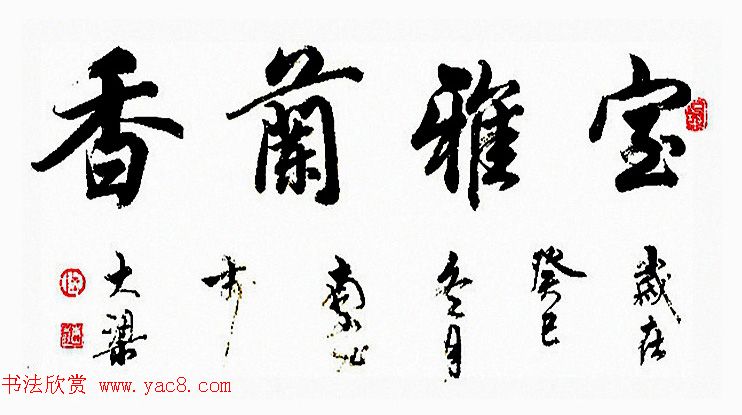 室雅蘭香
歲在
癸巳
冬月
大梁
书法欣赏 www.yac8.com